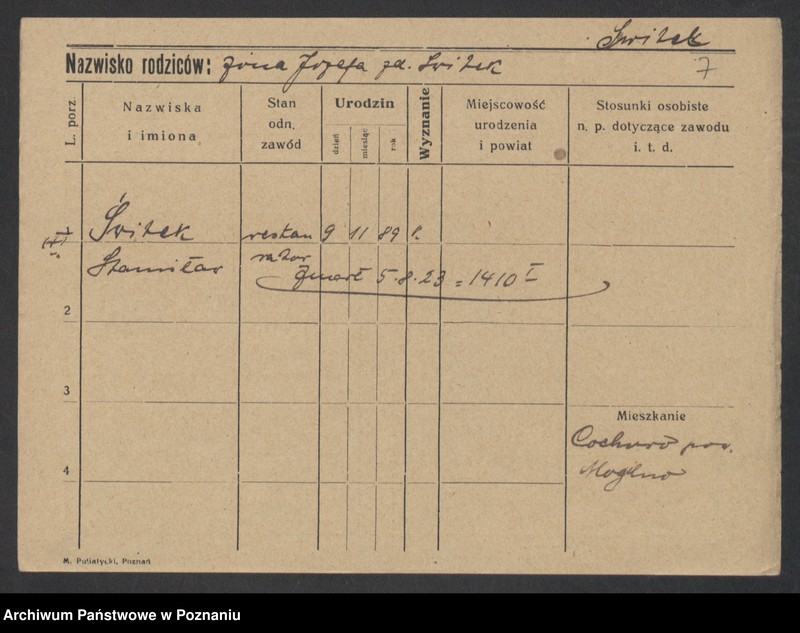 Świtek
Nazwisko rodziców: żona Józefa zd. Świtek 7
L. porz.
Nazwiska i imiona
Stan odn. zawód
Urodzin
dzień
miesiąc
rok
Wyznanie
Miejscowość urodzenia i powiat
Stosunki osobiste n. p. dotyczące zawodu i. t. d.
Świtek restau 9 11 89
Stanisław rator
zmarł 5.8.23 = 1410 I
2
3
Mieszkanie
pow.
4
Mogilno
M. Putiatycki, Poznań
Archiwum Państwowe w Poznaniu